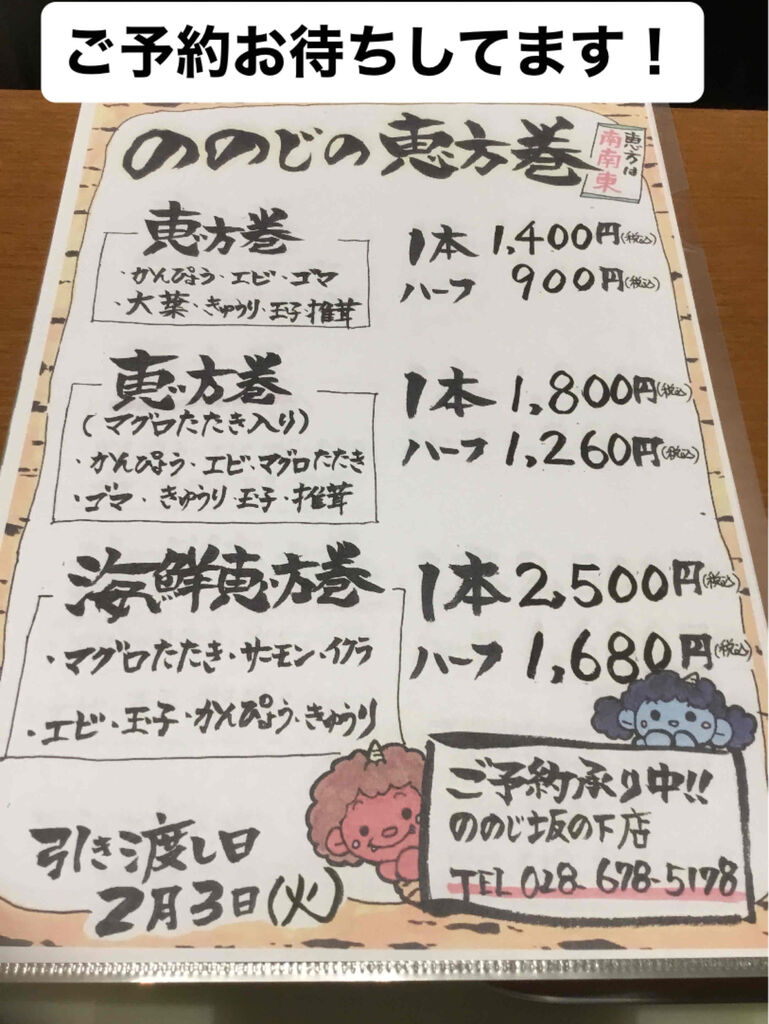 ご予約お待ちしてます！
ののじの恵方巻
恵方は
南南東
恵方巻
・かんぴょう・エビ・ゴマ
・大葉・きゅうり・玉子・椎茸
1本 1,400円(税込)
ハーフ 900円(税込)
恵方巻
(マグロたたき入り)
・かんぴょう・エビ・マグロたたき
・ゴマ・きゅうり・玉子・椎茸
1本 1,800円(税込)
ハーフ 1,260円(税込)
海鮮恵方巻
・マグロたたき・サーモン・イクラ
・エビ・玉子・かんぴょう・きゅうり
1本 2,500円(税込)
ハーフ 1,680円(税込)
ご予約承り中!!
ののじ坂の下店
TEL 028-678-5178
引き渡し日
2月3日(火)